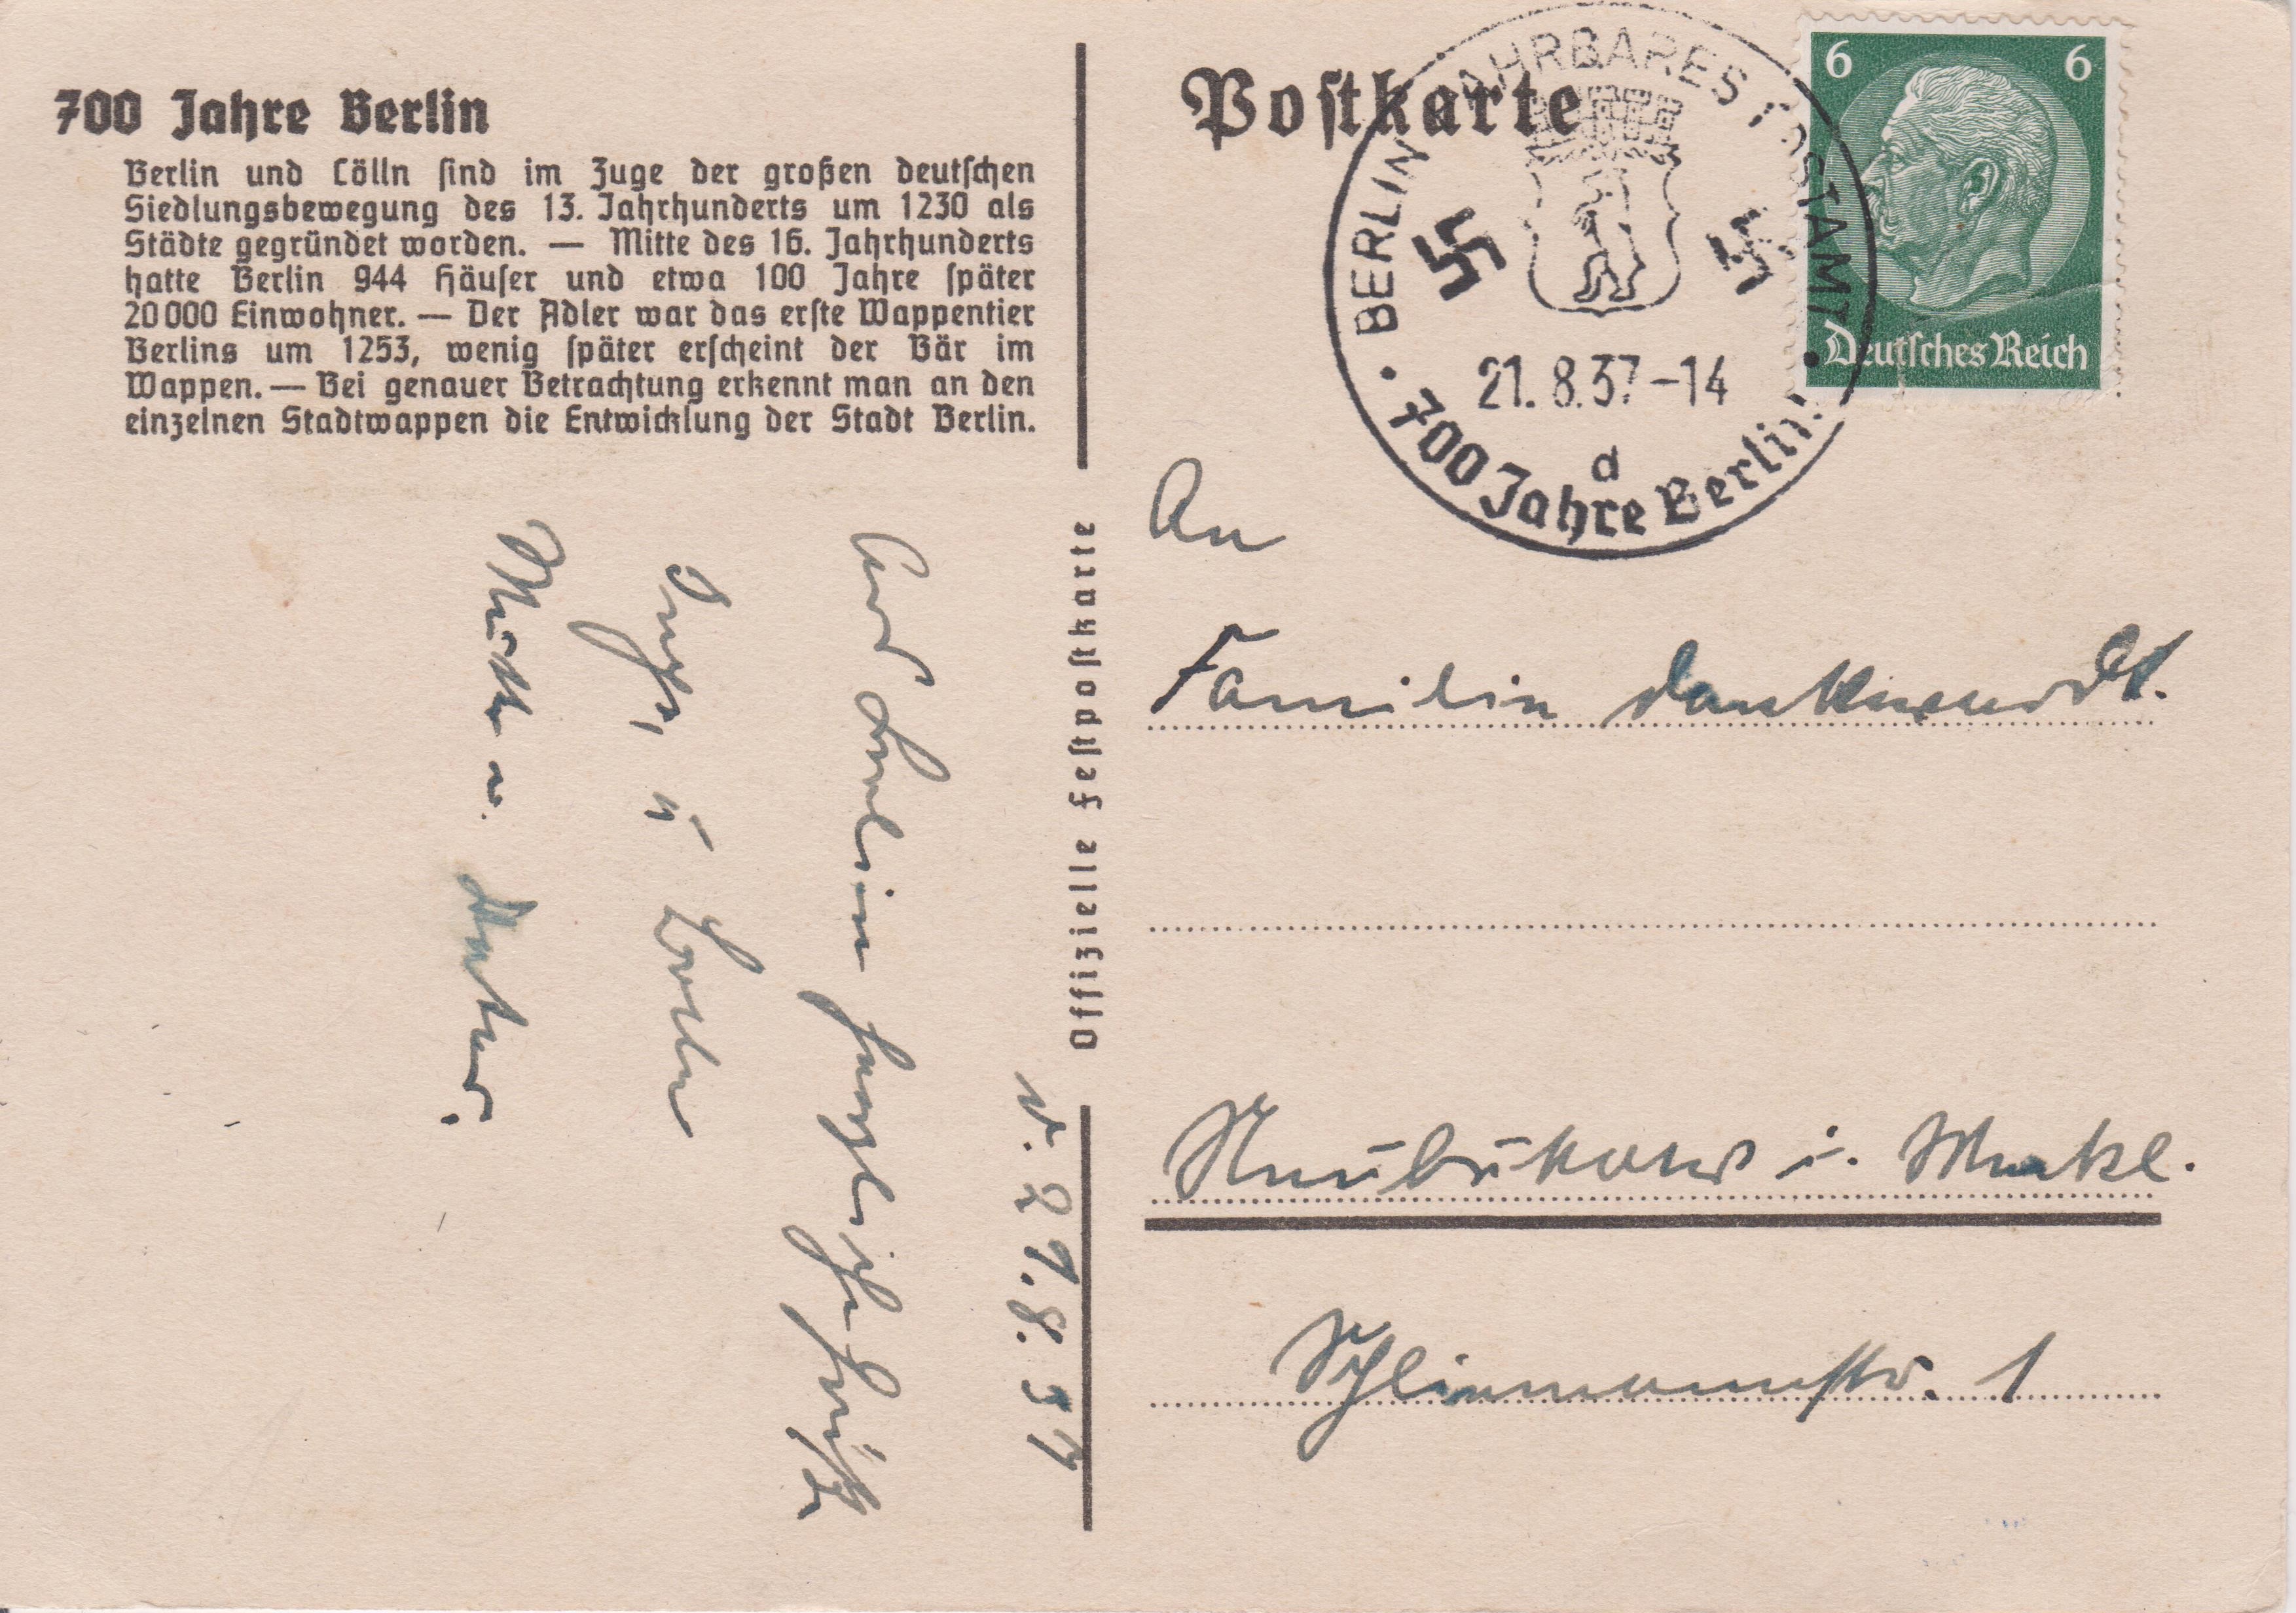 700 Jahre Berlin
Berlin und Cölln ſind im Zuge der großen deutſchen
Siedlungsbewegung des 13. Jahrhunderts um 1230 als
Städte gegründet worden. — Mitte des 16. Jahrhunderts
hatte Berlin 944 Häuſer und etwa 100 Jahre ſpäter
20000 Einwohner. — Der Adler war das erſte Wappentier
Berlins um 1253, wenig ſpäter erſcheint der Bär im
Wappen. — Bei genauer Betrachtung erkennt man an den
einzelnen Stadtwappen die Entwicklung der Stadt Berlin.
Offizielle Feſtpoſtkarte
d. 21.8.37
Aus Berlin herzliche Grüße
Mutter u. Vater.
Poſtkarte
BERLIN FAHRBARES POSTAMT
21.8.37-14
d
700 Jahre Berlin
6 6
Deutſches Reich
An
Familie Dankwardt.
Neubukow i. Meckl.
Schliemannstr. 1